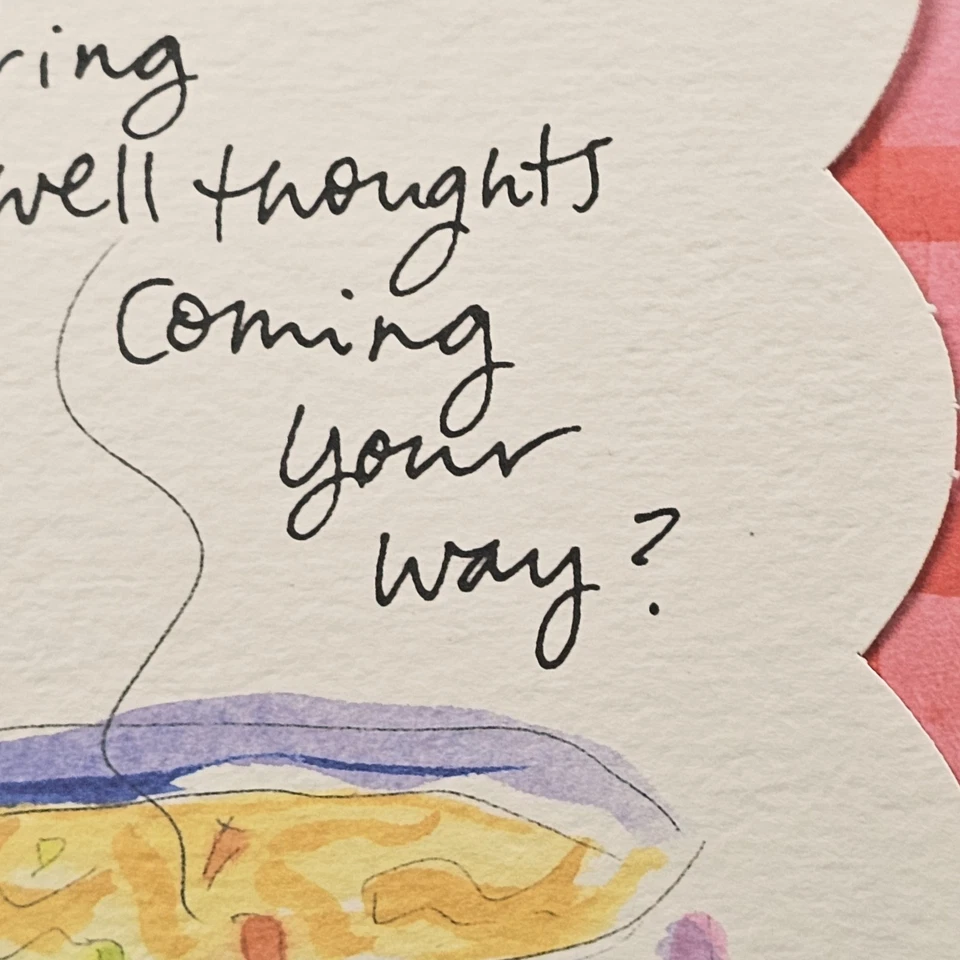 ring
well thoughts
coming
your
way?